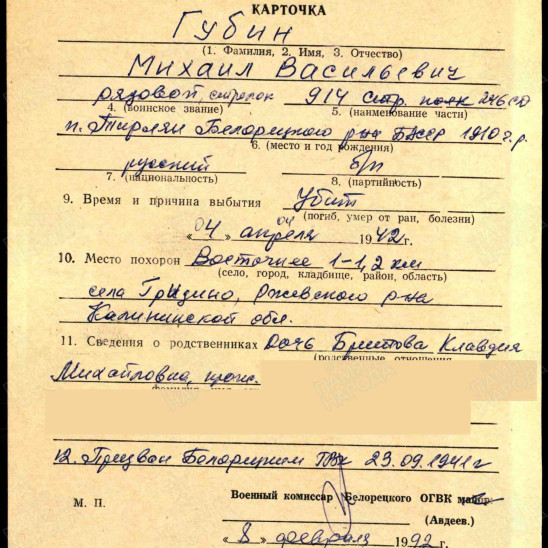 КАРТОЧКА
Губин
(1. Фамилия, 2. Имя, 3. Отчество)
Михаил Васильевич
рядовой, стрелок 914 стр. полк 246 сд
4. (воинское звание) 5. (наименование части)
п. Тирлян Белорецкого р-на БАССР 1910 г.р.
6. (место и год рождения)
русский б/п
7. (национальность) 8. (партийность)
9. Время и причина выбытия Убит
(погиб, умер от ран, болезни)
« 04 » апреля 04 1942 г.
10. Место похорон Восточнее 1-1,2 км
(село, город, кладбище, район, область)
села Грядино, Ржевского р-на
Калининской обл.
11. Сведения о родственниках Дочь Бритова Клавдия
(родственные отношения
Михайловна, прож.
12. Призван Белорецким ГВК 23.09.1941г
Военный комиссар Белорецкого ОГВК майор
М. П.
(Авдеев.)
« 8 » февраля 1992 г.